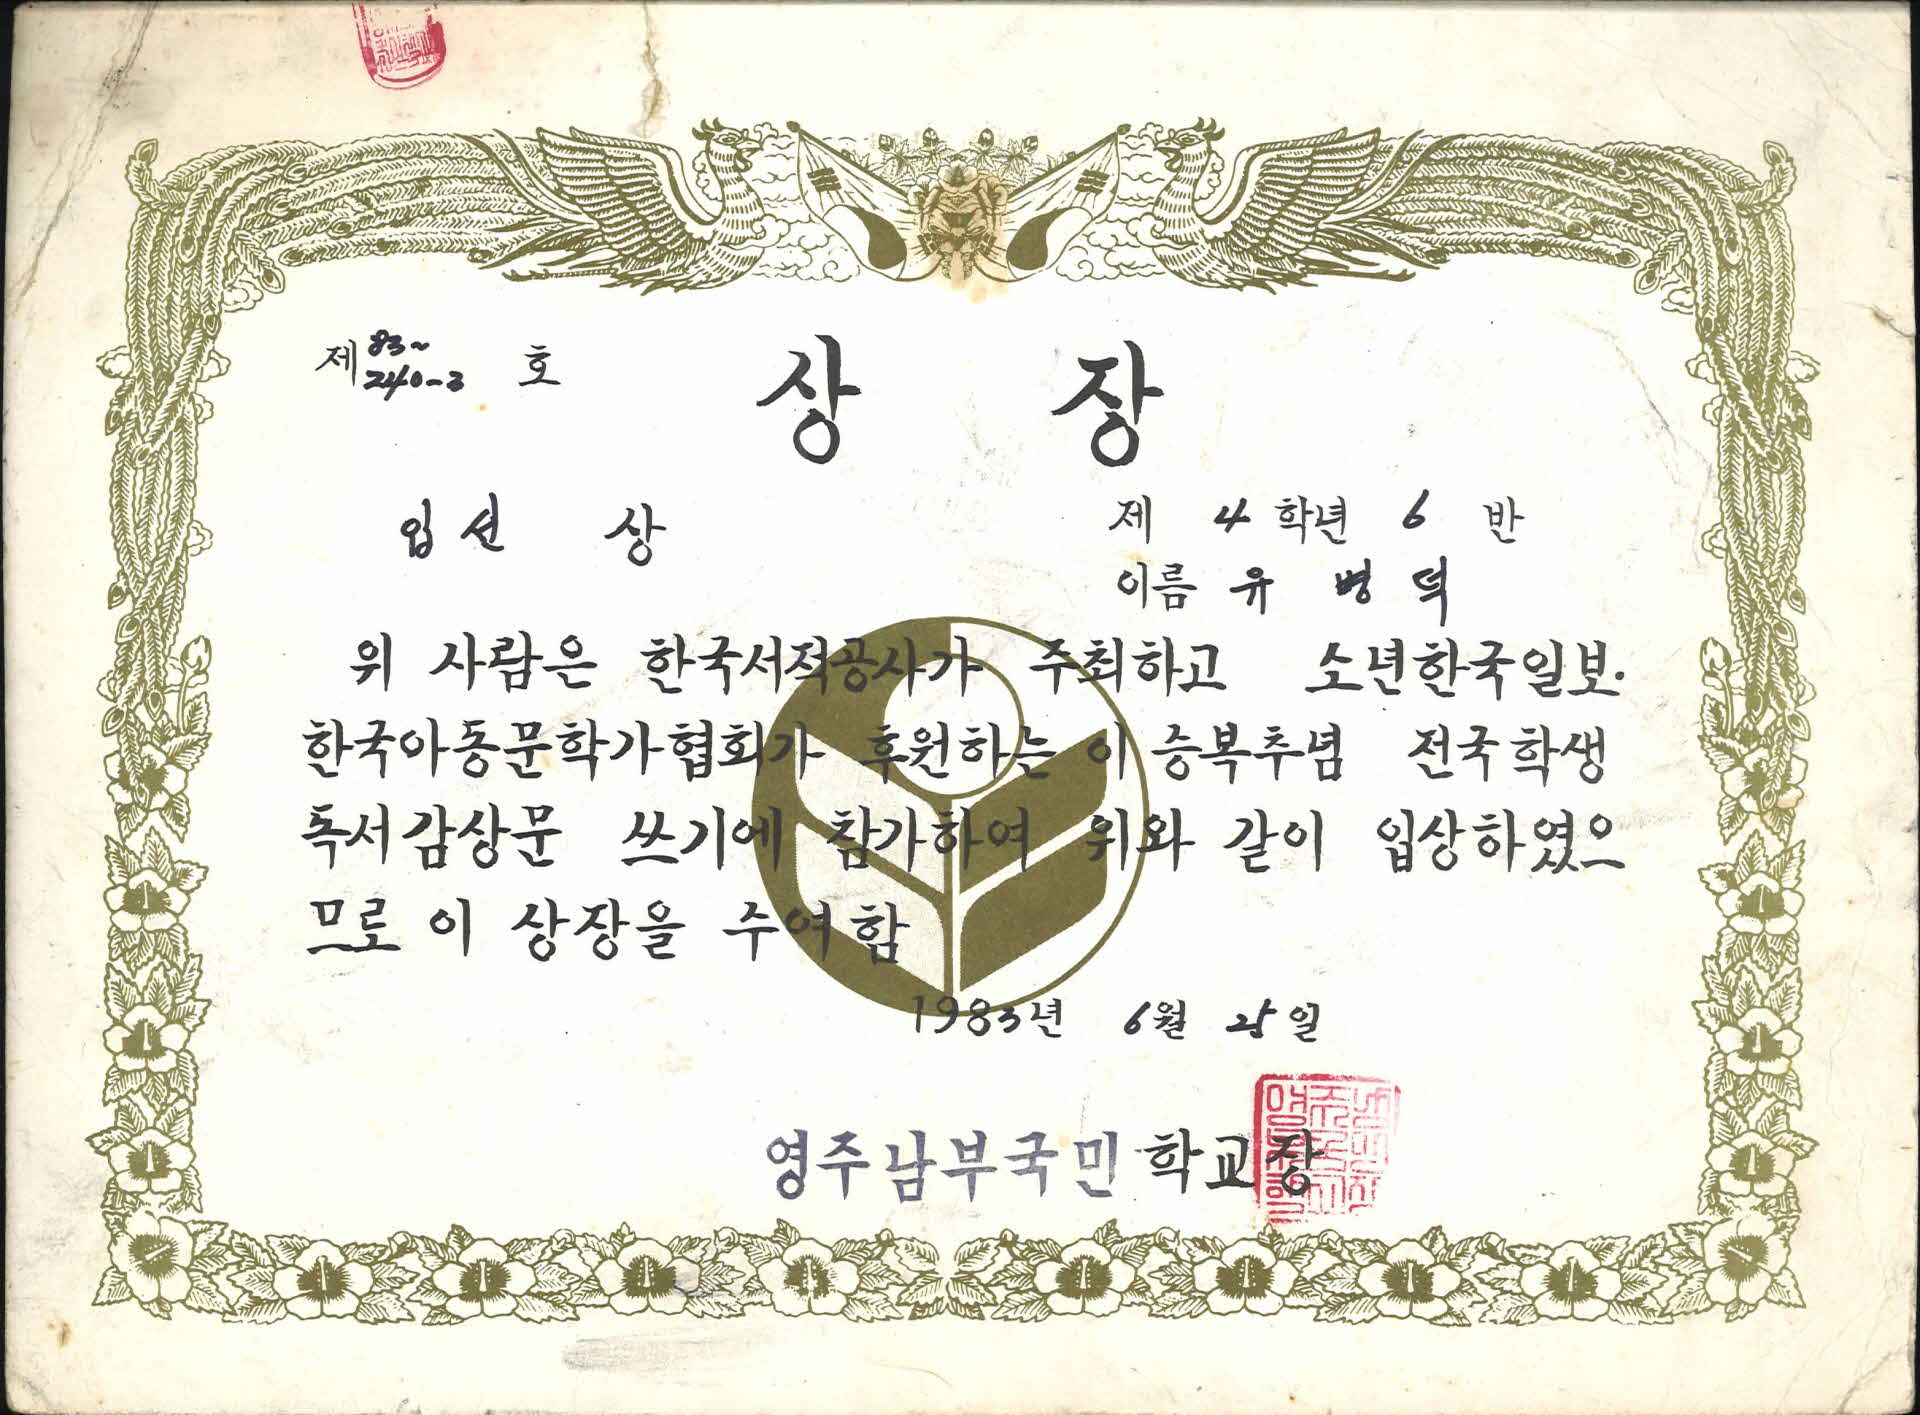 제 83~ 240-3 호
상 장
입선 상
제 4 학년 6 반
이름 유 병 덕
위 사람은 한국서적공사가 주최하고 소년한국일보·
한국아동문학가협회가 후원하는 이승복추념 전국학생
독서감상문 쓰기에 참가하여 위와 같이 입상하였으
므로 이 상장을 주여함
1983년 6월 25일
영주남부국민학교장